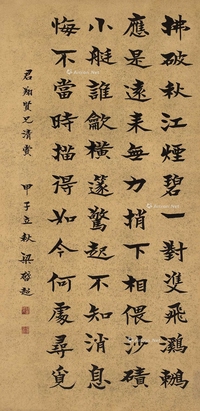 拂破秋江煙碧一對雙飛鸂鶒
應是遠來無力捎下相偎沙磧
小艇誰橫篴驚起不知消息
悔不當時描得如今何處尋覓
君翔賢兄清賞 甲子立秋 梁啓超